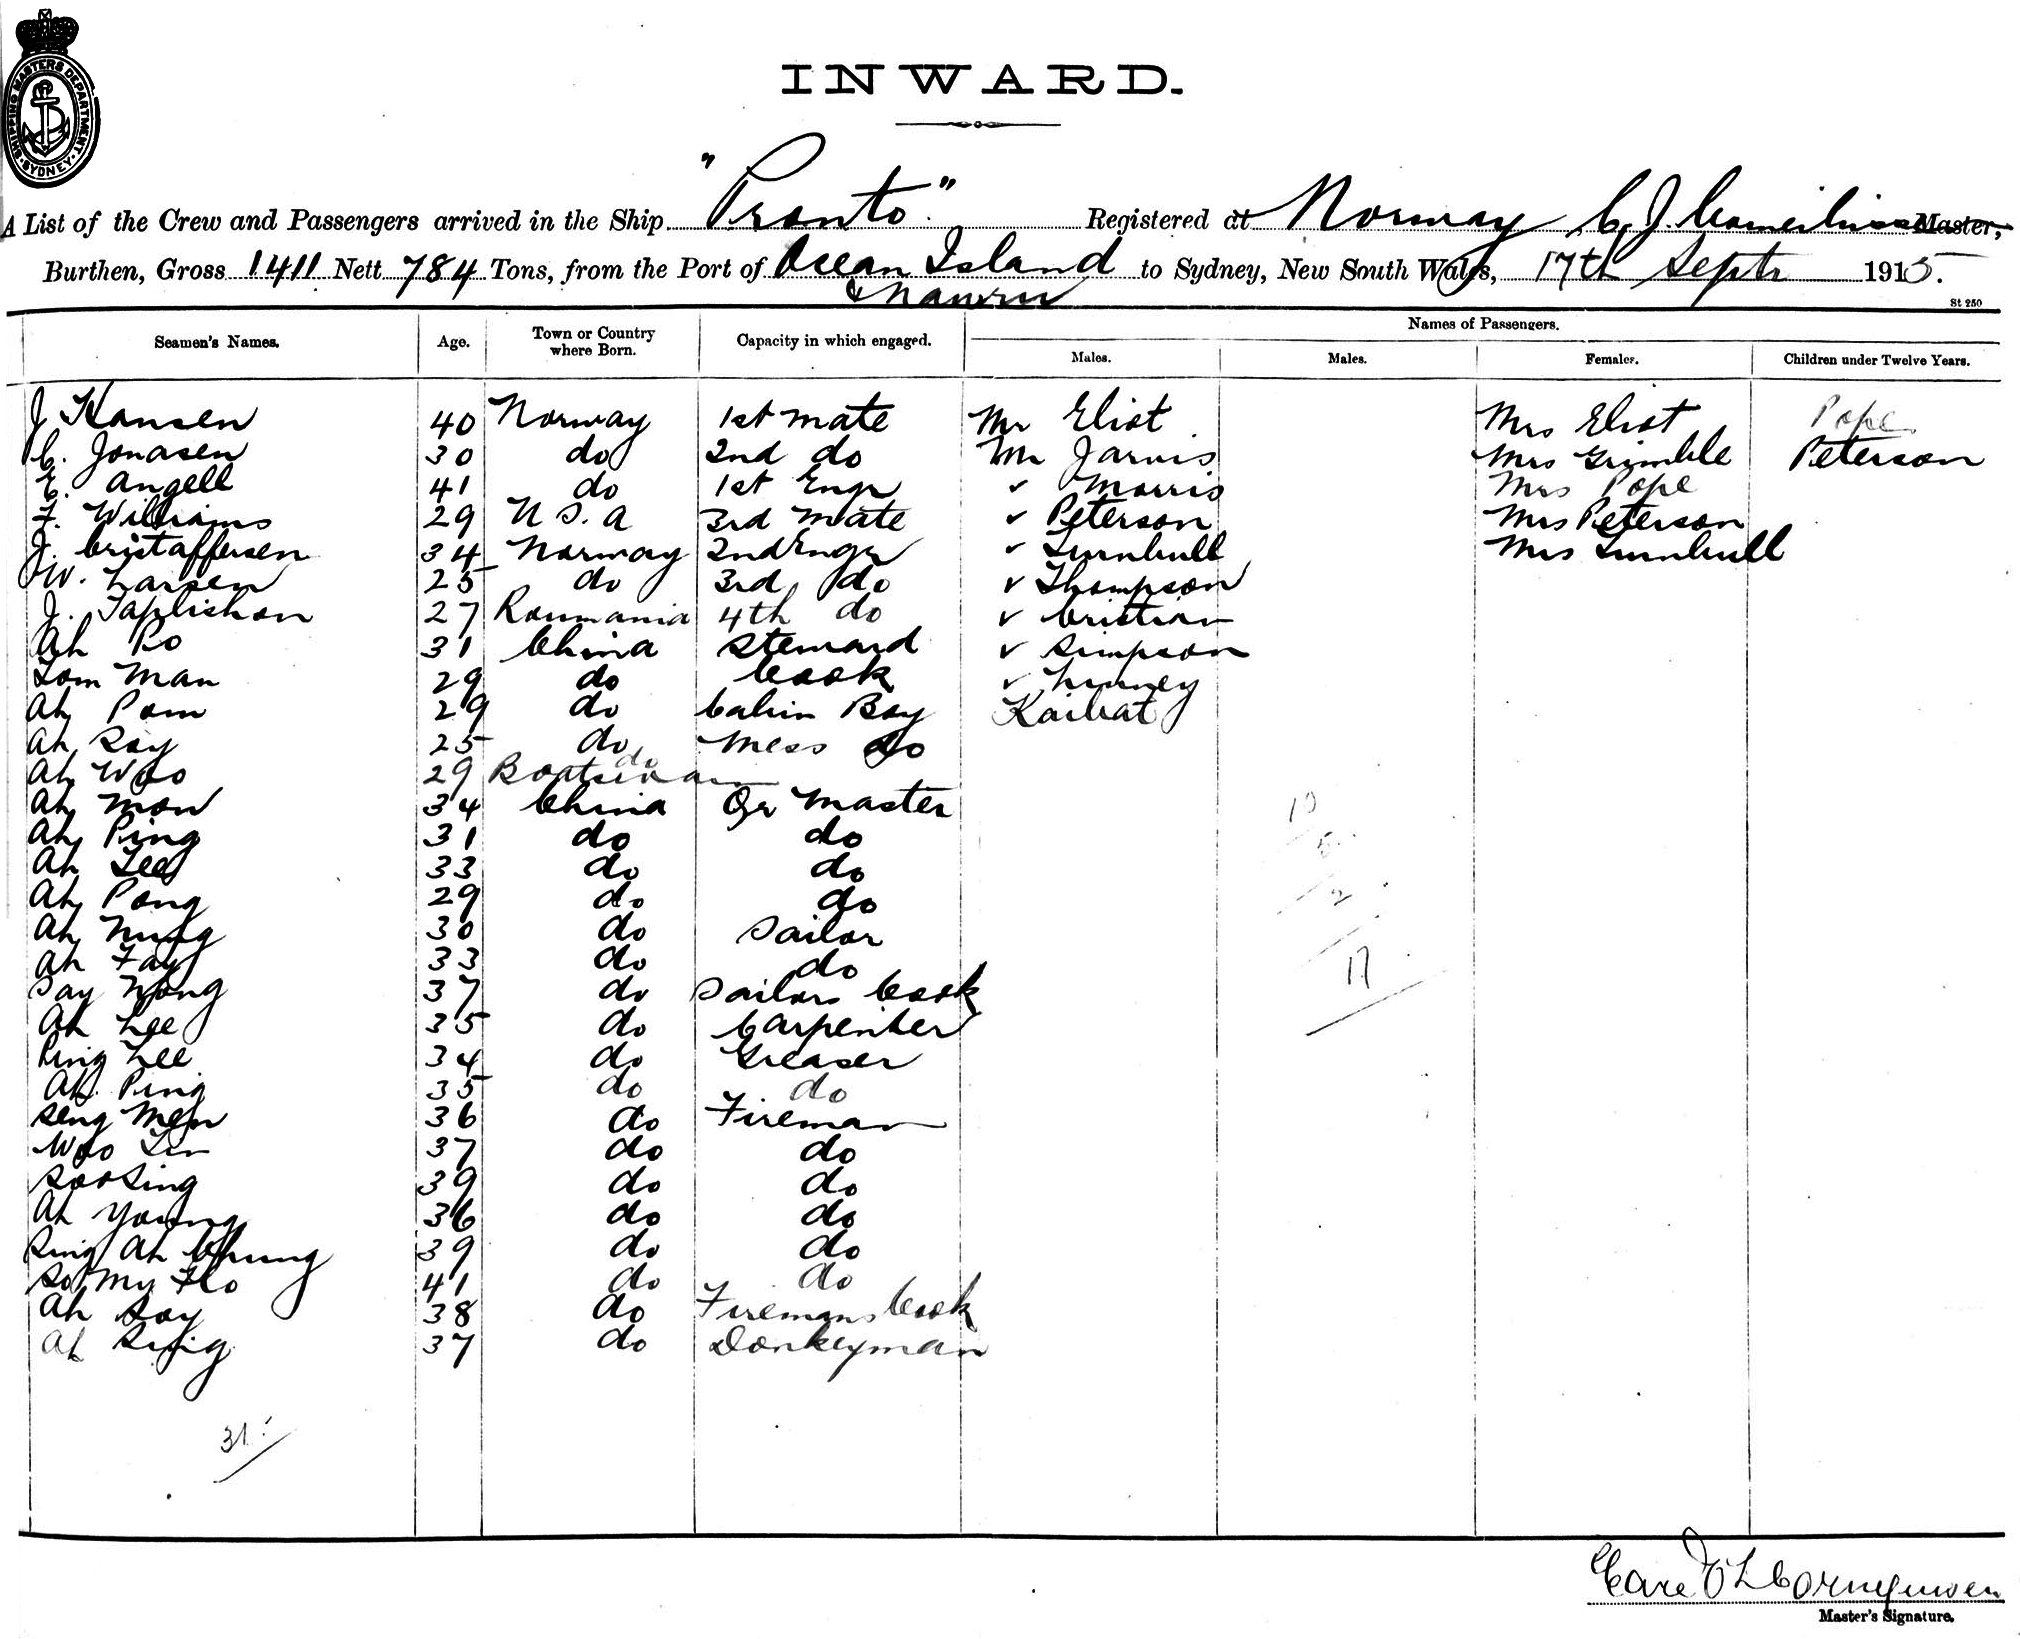 SHIPPING MASTERS DEPARTMENT. SYDNEY.
INWARD.
A List of the Crew and Passengers arrived in the Ship "Pronto" Registered at Norway C. J. Master,
Burthen, Gross 1411 Nett 784 Tons, from the Port of Ocean Island to Sydney, New South Wales, 17th Septr 1915.
& Nauru
St 250
Seamen's Names. Age. Town or Country where Born. Capacity in which engaged. Names of Passengers.
Males. Males. Females. Children under Twelve Years.
J Hansen 40 Norway 1st mate Mr Eliot Mrs Eliot Pope
C. Jonasen 30 do 2nd do Mr Jarvis Mrs Grimble Peterson
E. Angell 41 do 1st Engr " Morris Mrs Pope
F. Williams 29 U S. A 3rd Mate " Peterson Mrs Peterson
J. Cristaffersen 34 Norway 2nd Engr " Turnbull Mrs Turnbull
W. Larsen 25 do 3rd do " Thompson
J. 27 Roumania 4th do " Cristian
Ah Po 31 China Steward " Simpson
Tom Man 29 do Cook "
Ah Pom 29 do Cabin Boy Kaibat
Ah Say 25 do Mess do
Ah Woo 29 Boatswain do
Ah Mow 34 China Qr Master
Ah Ping 31 do do
Ah Lee 33 do do
Ah Pong 29 do do
Ah Nung 30 do Sailor
Ah Fay 33 do do
Say Nong 37 do Sailors Cook
Ah Lee 35 do Carpenter
Ping Lee 34 do Greaser
Ah Ping 35 do do
Seng Men 36 do Fireman
Woo Lin 37 do do
Soo Sing 39 do do
Ah Young 36 do do
Sing Ah Chung 39 do do
So My Flo 41 do do
Ah Soy 38 do Firemans Cook
Ah Sing 37 do Donkeyman
10
5
2
17
31
Master's Signature.